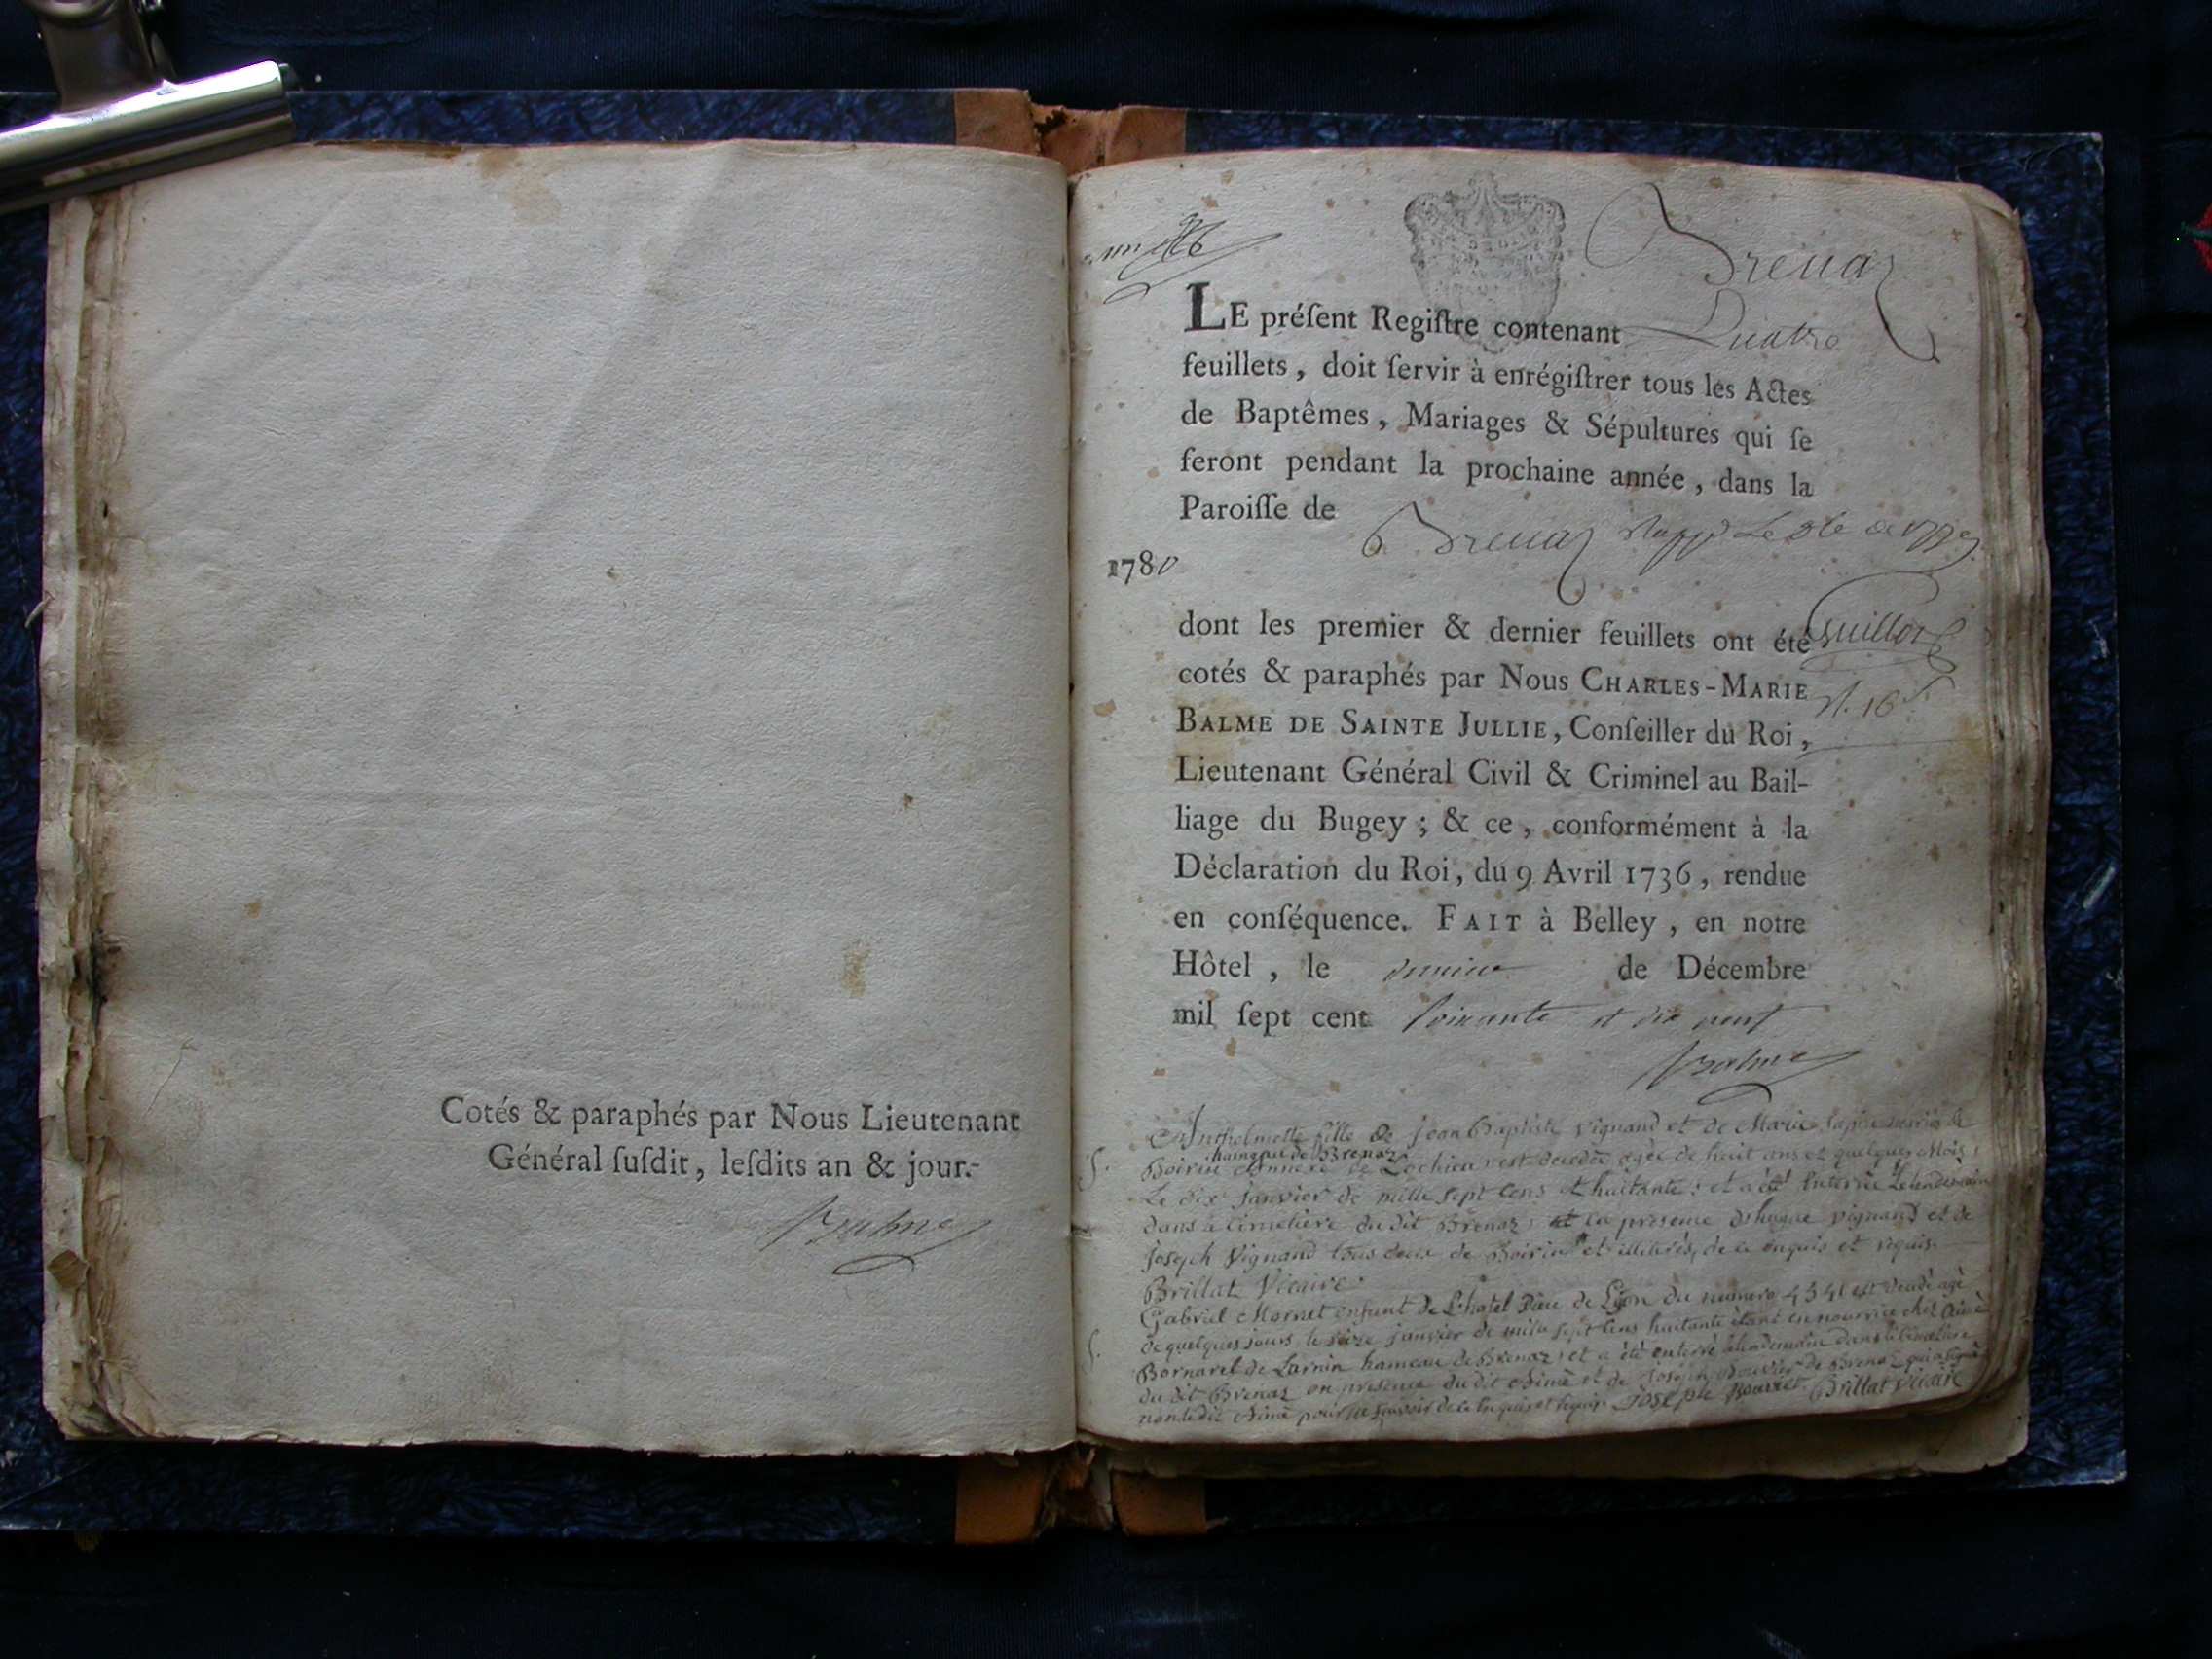 Cotés & paraphés par Nous Lieutenant
Général ſuſdit, leſdits an & jour.
Balme
Brenaz
LE préſent Regiſtre contenant Quatre
feuillets, doit ſervir à enrégiſtrer tous les Actes
de Baptêmes, Mariages & Sépultures qui ſe
feront pendant la prochaine année, dans la
Paroiſſe de Brenaz
1780
dont les premier & dernier feuillets ont été
cotés & paraphés par Nous CHARLES-MARIE
BALME DE SAINTE JULLIE, Conſeiller du Roi,
Lieutenant Général Civil & Criminel au Bail-
liage du Bugey; & ce, conformément à la
Déclaration du Roi, du 9 Avril 1736, rendue
en conſéquence. FAIT à Belley, en notre
Hôtel, le de Décembre
mil ſept cent soixante et dix neuf
Balme
Anthelmette fille de jean Baptiste vignand et de Marie
hameau de Brenaz
Boirin annexe de Lochieu est decedée agée de huit ans et quelques Mois,
Le dix janvier de mille sept cens et huitante; et a été enterrée Le lendemain
dans le cimetiere du dit Brenaz, en la presence d'hugue vignand et de
joseph vignand tous deux de Boirin et illiterés, de ce enquis et requis.
Brillat Vicaire
Gabriel Mornet enfant de L'hotel Dieu de Lyon du numero est decedé agé
de quelques jours le seize janvier de mile sept cens huitante étant en nourrice chez Aimé
Bornarel de hameau de Brenaz, et a été enterré le lendemain dans le cimetiere
du dit Brenaz en presence du dit Aimé et de joseph Bouvier de Brenaz qui a signé
non le dit Aimé pour ne sçavoir de ce enquis et requis. Joseph Bouvier Brillat Vicaire